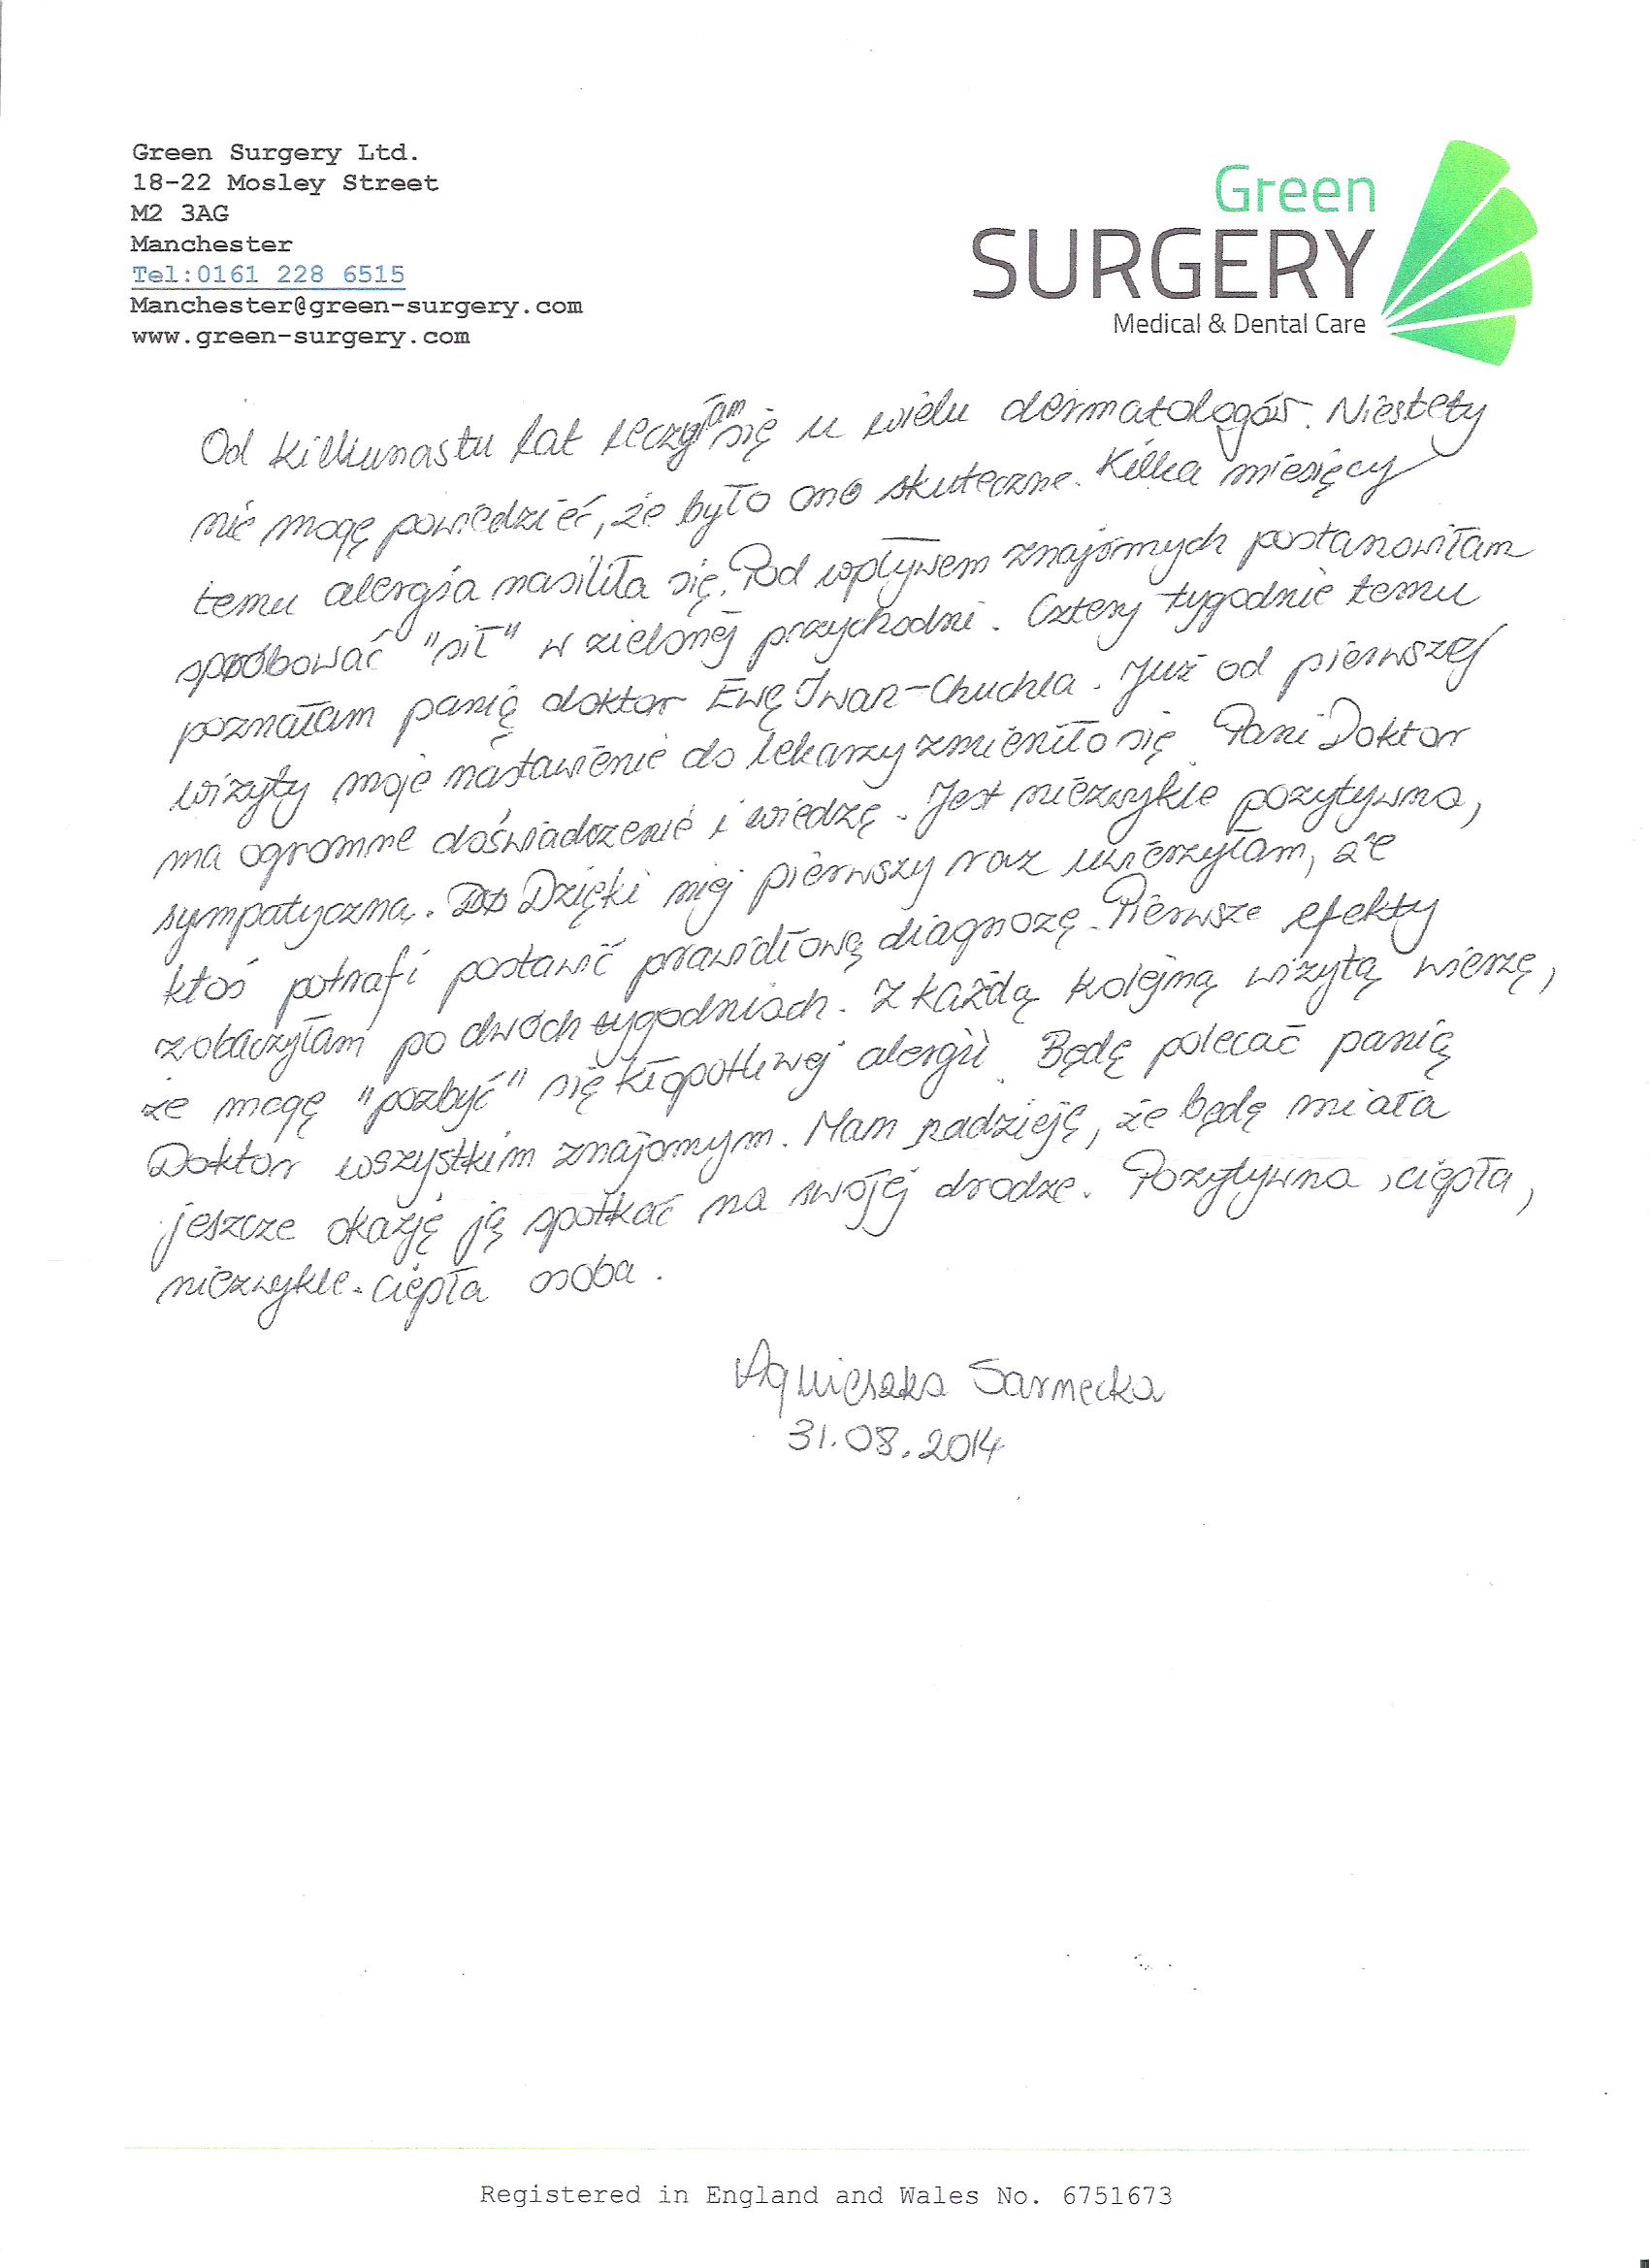 Green Surgery Ltd.
18-22 Mosley Street
M2 3AG
Manchester
Tel:0161 228 6515
Manchester@green-surgery.com
www.green-surgery.com
Green
SURGERY
Medical & Dental Care
Od kilkunastu lat leczyłam się u wielu dermatologów. Niestety
nie mogę powiedzieć, że było one skuteczne. Kilka miesięcy
temu alergia nasiliła się. Pod wpływem znajomych postanowiłam
spróbować "sił" w zielonej przychodni. Cztery tygodnie temu
poznałam panią doktor Ewę Iwan-Chuchla. Już od pierwszej
wizyty moje nastawienie do lekarzy zmieniło się. Pani Doktor
ma ogromne doświadczenie i wiedzę. Jest niezwykle pozytywna,
sympatyczna. Dzięki niej pierwszy raz uwierzyłam, że
ktoś potrafi postawić prawidłową diagnozę. Pierwsze efekty
zobaczyłam po dwóch tygodniach. Z każdą kolejną wizytą wierzę,
że mogę "pozbyć" się kłopotliwej alergii. Będę polecać panią
Doktor wszystkim znajomym. Mam nadzieję, że będę miała
jeszcze okazję ją spotkać na swojej drodze. Pozytywna, ciepła,
niezwykle ciepła osoba.
Agnieszka Sarnecka
31.08.2014
Registered in England and Wales No. 6751673